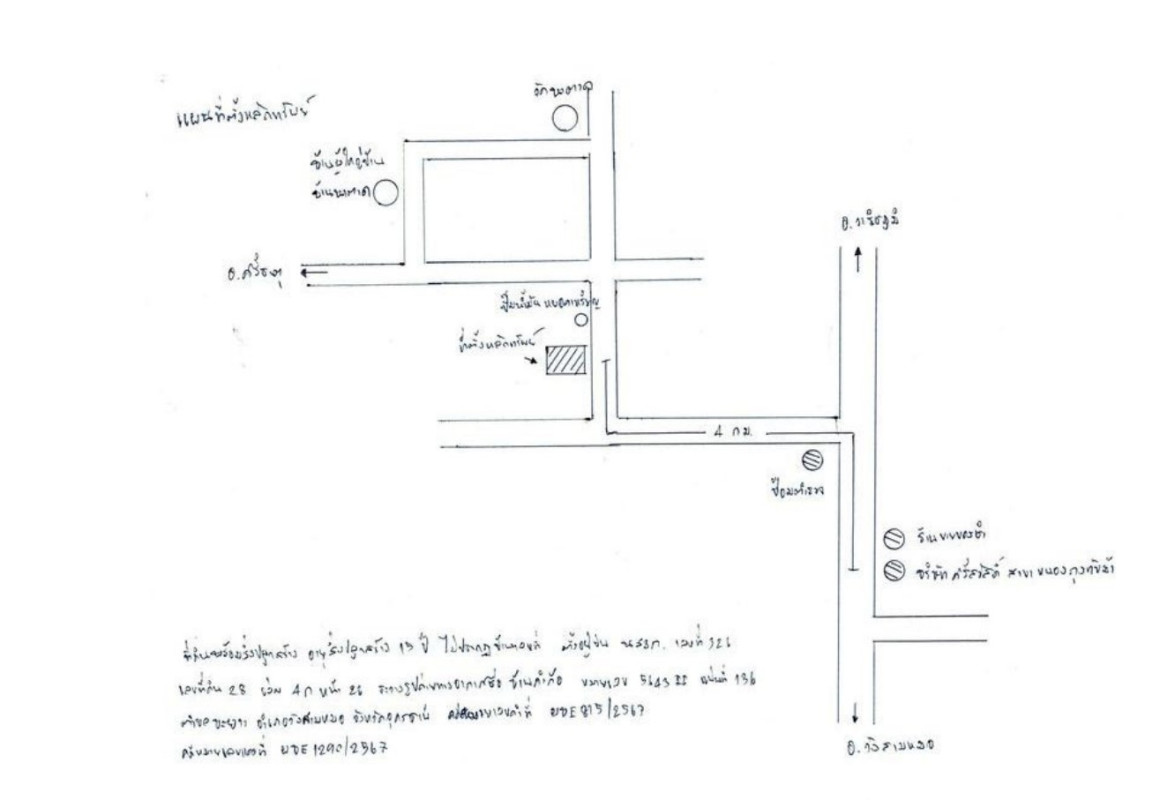 แผนที่ตั้งหลักทรัพย์
วัดนาตาด
บ้านผู้ใหญ่บ้าน
บ้านนาตาด
อ.วาปีปทุม
อ.ศรีธาตุ
ปั๊มน้ำมัน หยอดเหรียญ
ที่ตั้งหลักทรัพย์
4 กม.
ป้อมตำรวจ
ร้านขายของชำ
บริษัท ศรีสวัสดิ์ สาขา หนองกุงทับม้า
ที่ดินพร้อมสิ่งปลูกสร้าง อายุสิ่งปลูกสร้าง 15 ปี ไม่ปรากฏบ้านเลขที่ ตั้งอยู่บน น.ส.3ก. เลขที่ 326
เลขที่ดิน 28 เล่ม 4ก หน้า 26 ระวางรูปถ่ายทางอากาศชื่อ บ้านคำค้อ หมายเลข 5643 II แผ่นที่ 136
ตำบล อำเภอวังสามหมอ จังหวัดอุดรธานี คดีหมายเลขดำที่ ผบE815/2567
คดีหมายเลขแดงที่ ผบE1290/2567
อ.วังสามหมอ